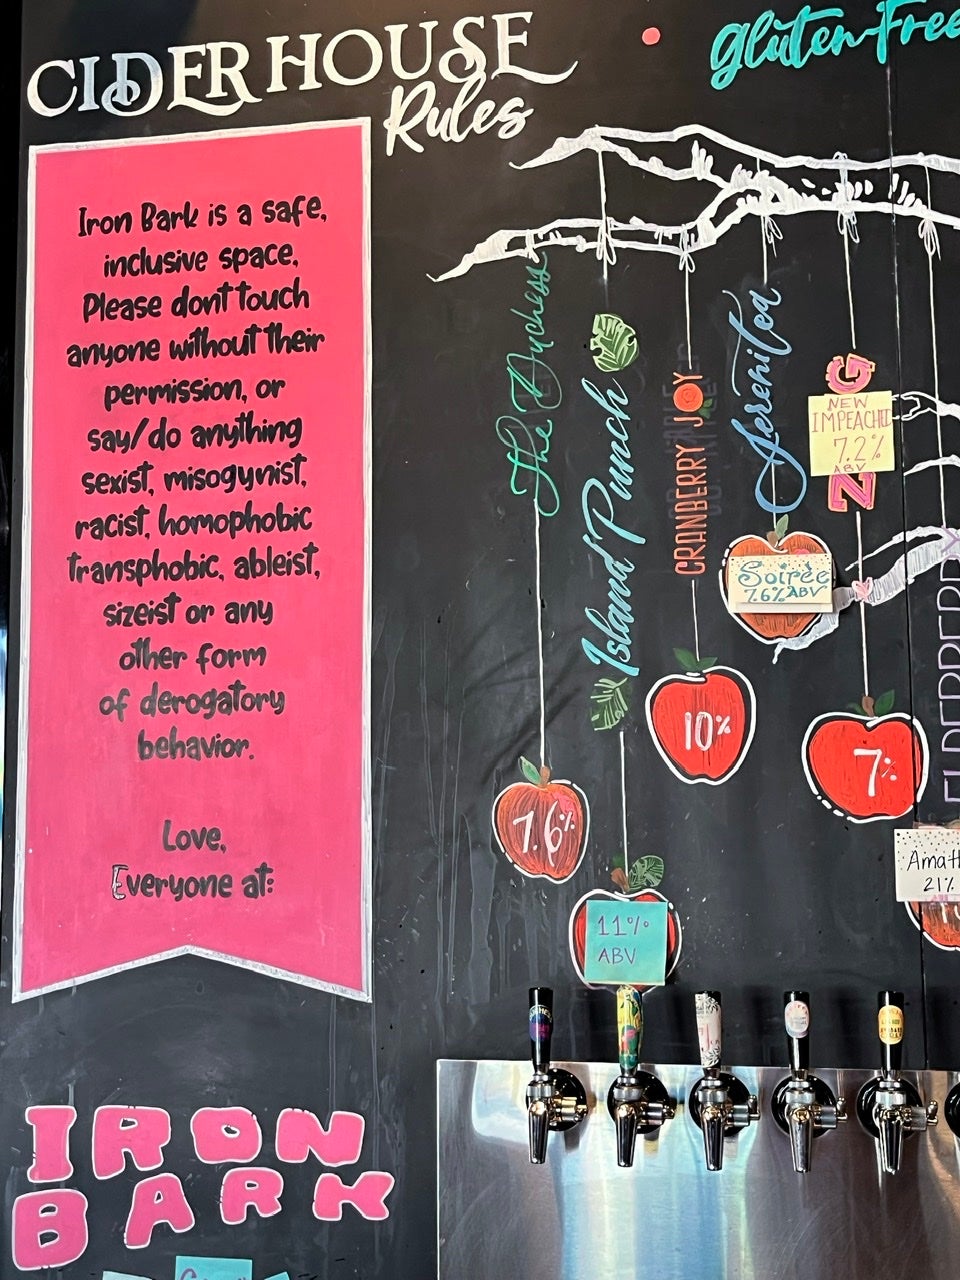 CIDER HOUSE
Rules
Gluten-Free
Iron Bark is a safe,
inclusive space.
Please dont touch
anyone without their
permission, or
say/do anything
sexist, misogynist,
racist, homophobic
transphobic, ableist,
sizeist or any
other form
of derogatory
behavior.
Love,
Everyone at:
IRON
BARK
The Duchess
7.6%
Island Punch
11%
ABV
CRANBERRY JOY
10%
Sereni tea
Soirée
7.6% ABV
ZG
NEW
IMPEACHED
7.2%
ABV
7%
ELDERBERRY
21%